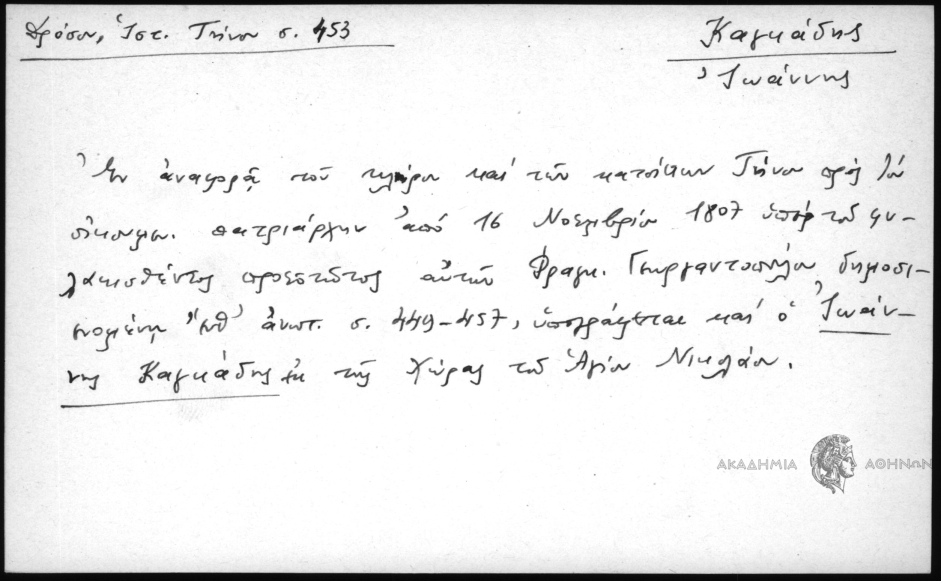 Δρόσου, Ἱστ. Τήνου σ. 453
Καγκάδης
Ἰωάννης
Ἐν ἀναφορᾷ τοῦ κλήρου καὶ τῶν κατοίκων Τήνου πρὸς τὸν
οἰκουμ. πατριάρχην ἀπὸ 16 Νοεμβρίου 1807 ὑπὲρ τοῦ φυ-
λακισθέντος προεστῶτος αὐτῶν Φραγκ. Γεωργαντοπούλου, δημοσι-
ευομένῃ ἔνθ' ἀνωτ. σ. 449-457, ὑπογράφεται καὶ ὁ Ἰωάν-
νης Καγκάδης ἐκ τῆς Χώρας τοῦ Ἁγίου Νικολάου.
ΑΚΑΔΗΜΙΑ ΑΘΗΝΩΝ